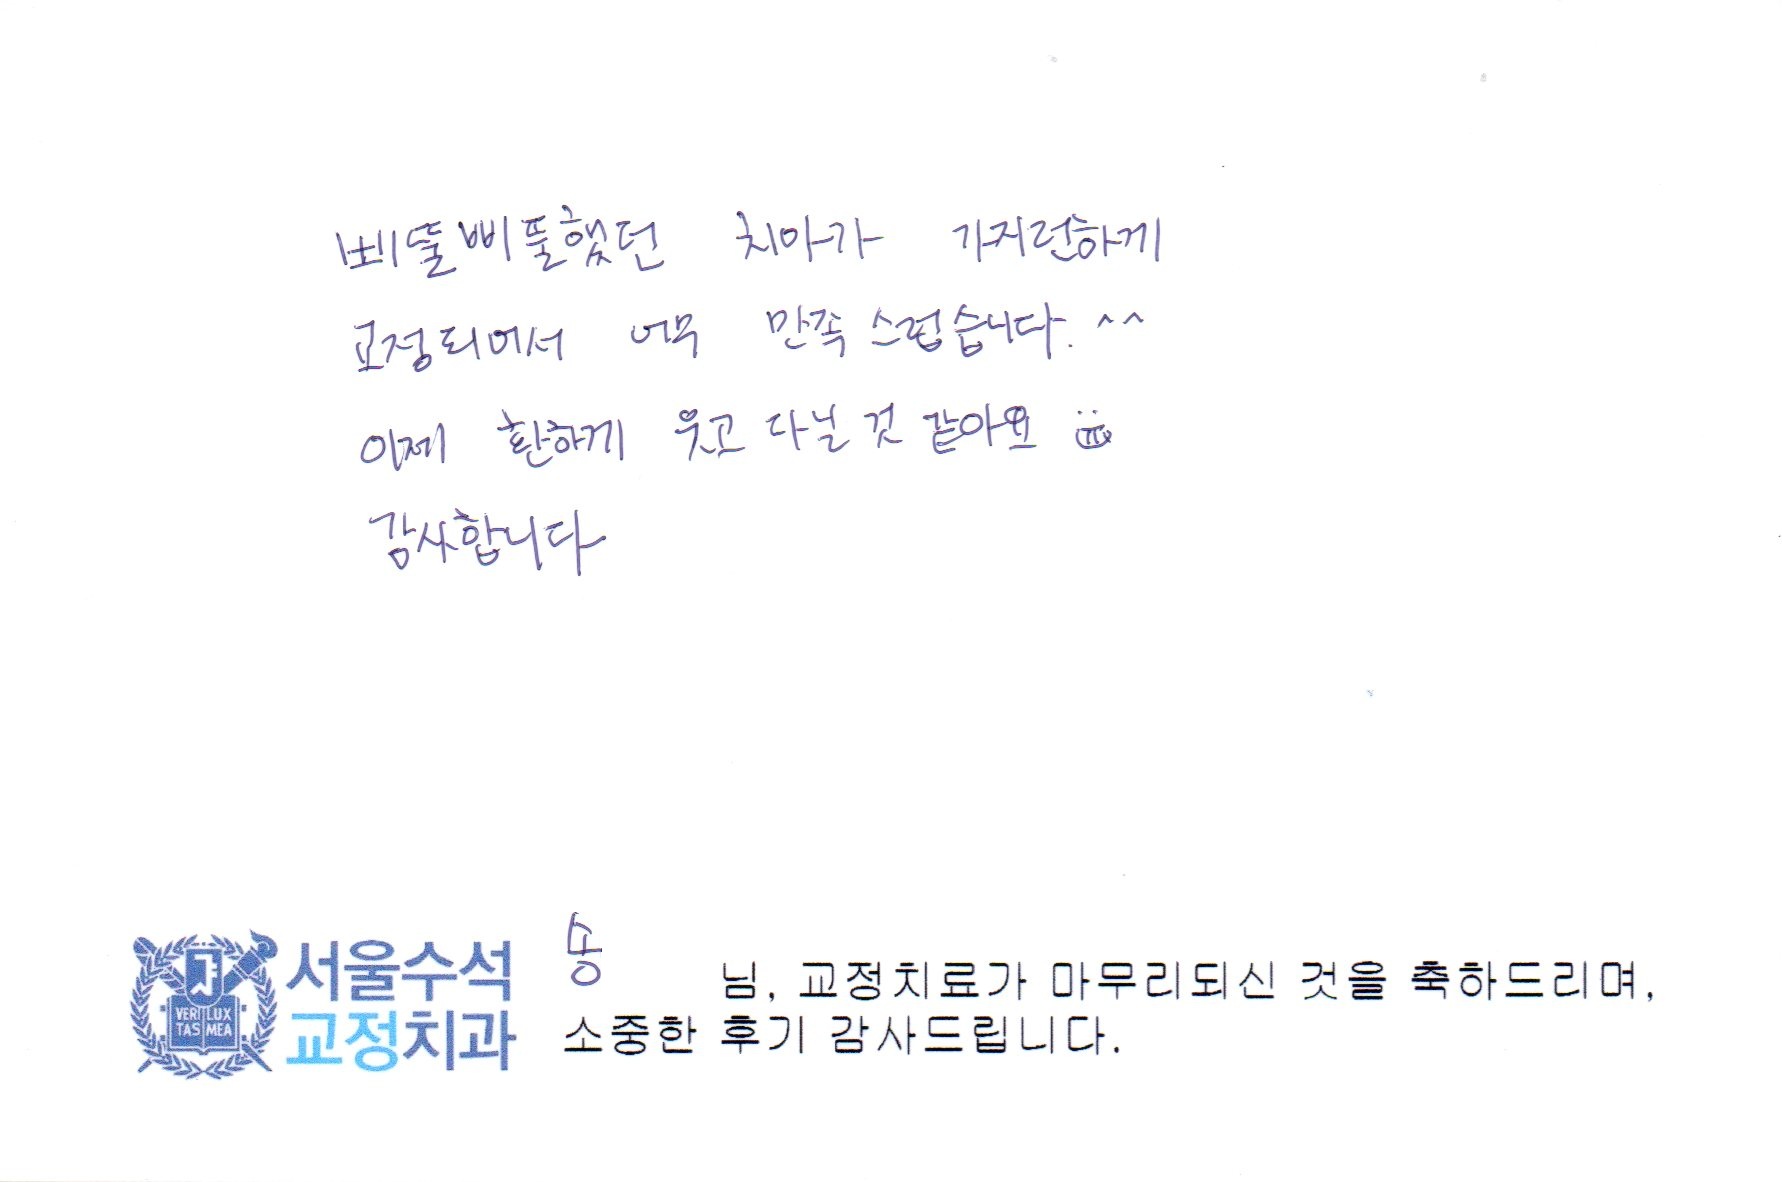 삐뚤삐뚤했던 치아가 가지런하게
교정되어서 너무 만족스럽습니다. ^^
이제 환하게 웃고 다닐 것 같아요
감사합니다
서울수석
교정치과
VERI LUX
TAS MEA
송 님, 교정치료가 마무리되신 것을 축하드리며,
소중한 후기 감사드립니다.